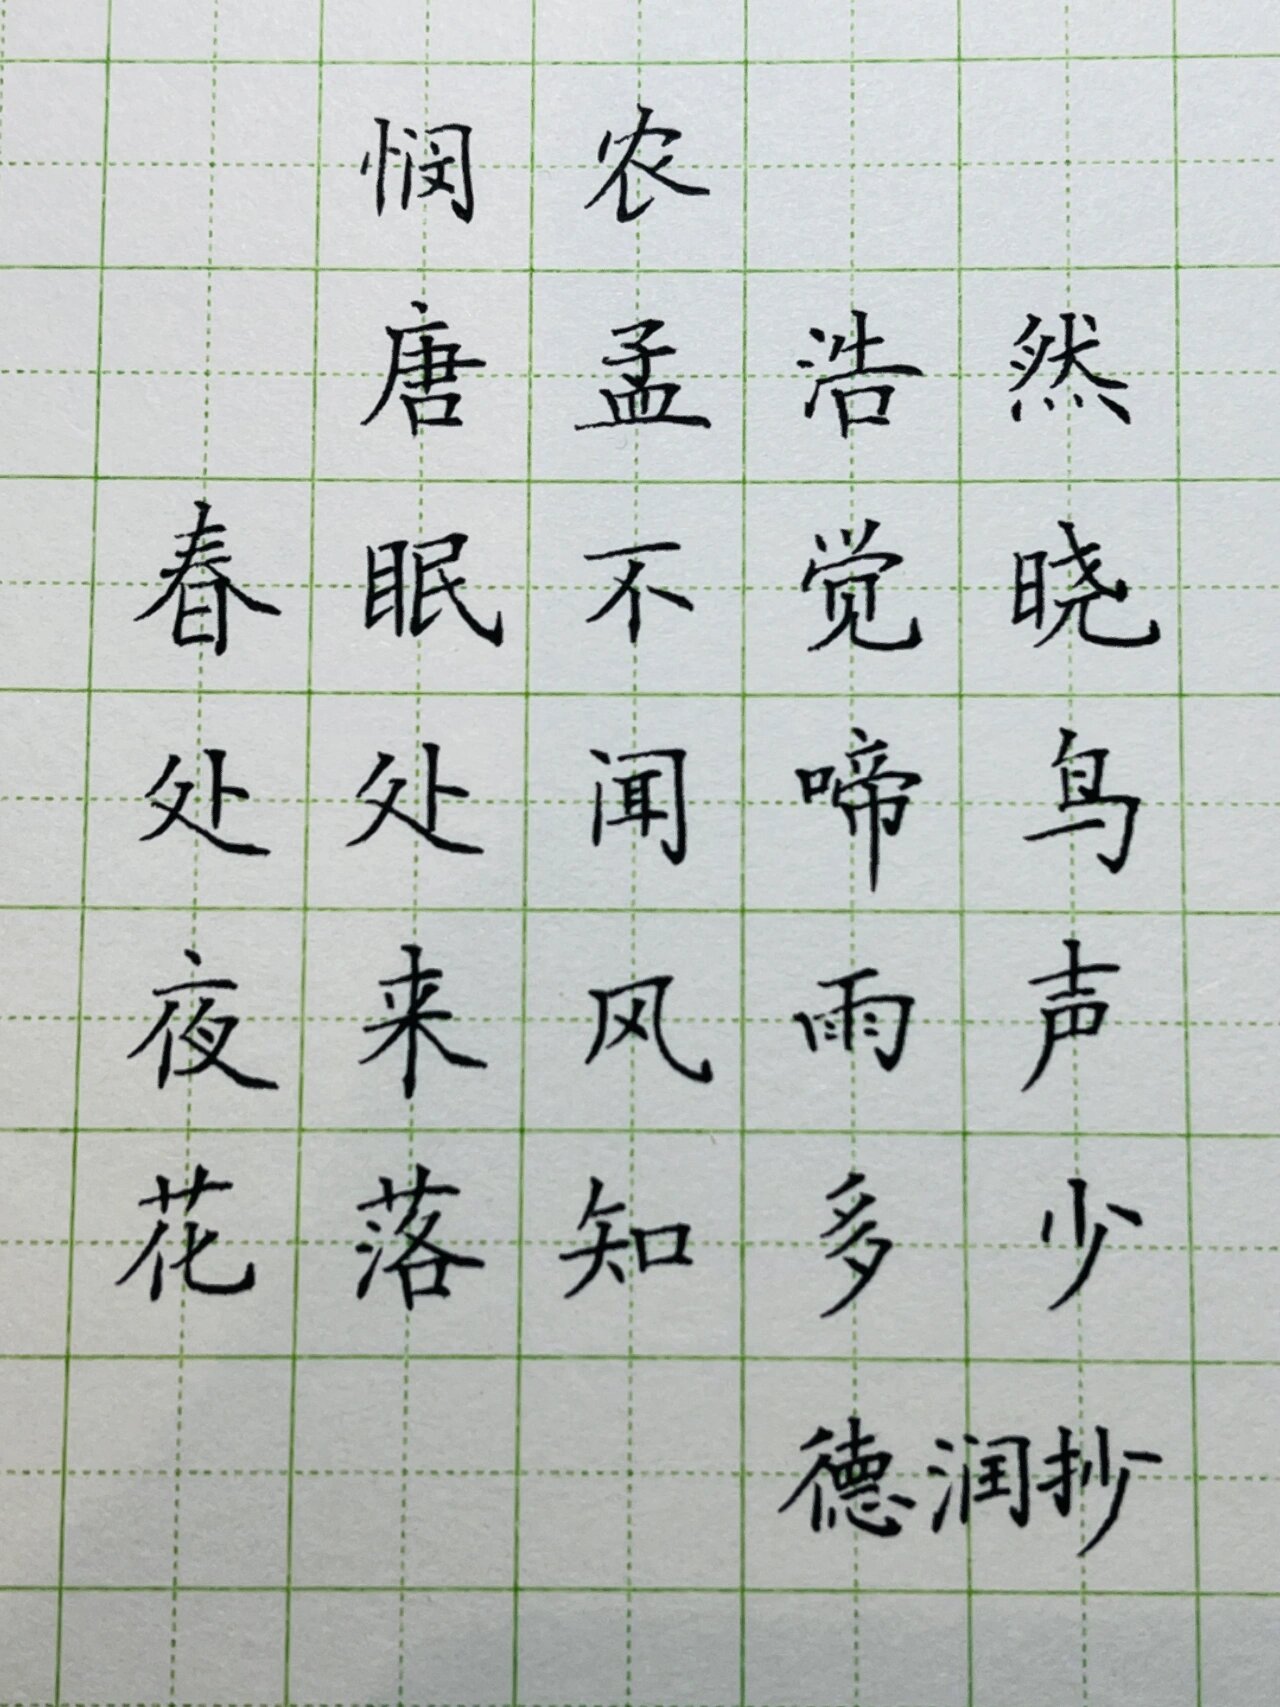 悯农
唐孟浩然
春眠不觉晓
处处闻啼鸟
夜来风雨声
花落知多少
德润抄